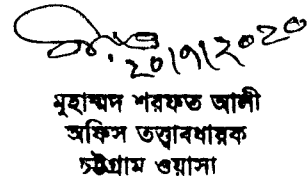 ২০/৭/২০২০
মুহাম্মদ শরফত আলী
অফিস তত্ত্বাবধায়ক
চট্টগ্রাম ওয়াসা